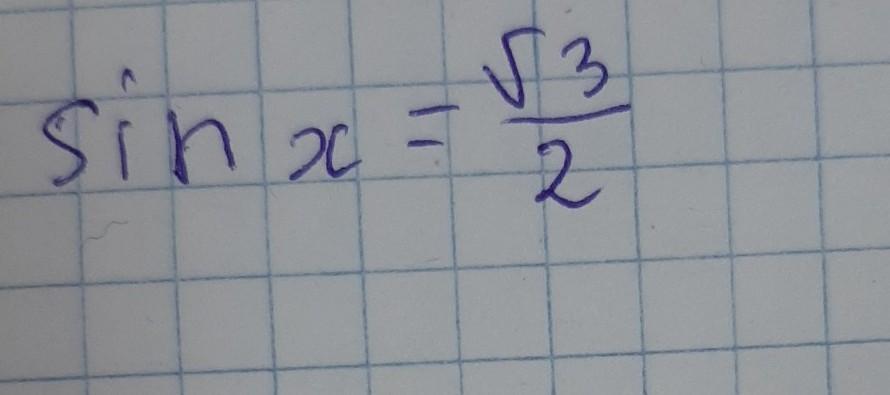 sin x = √3/2